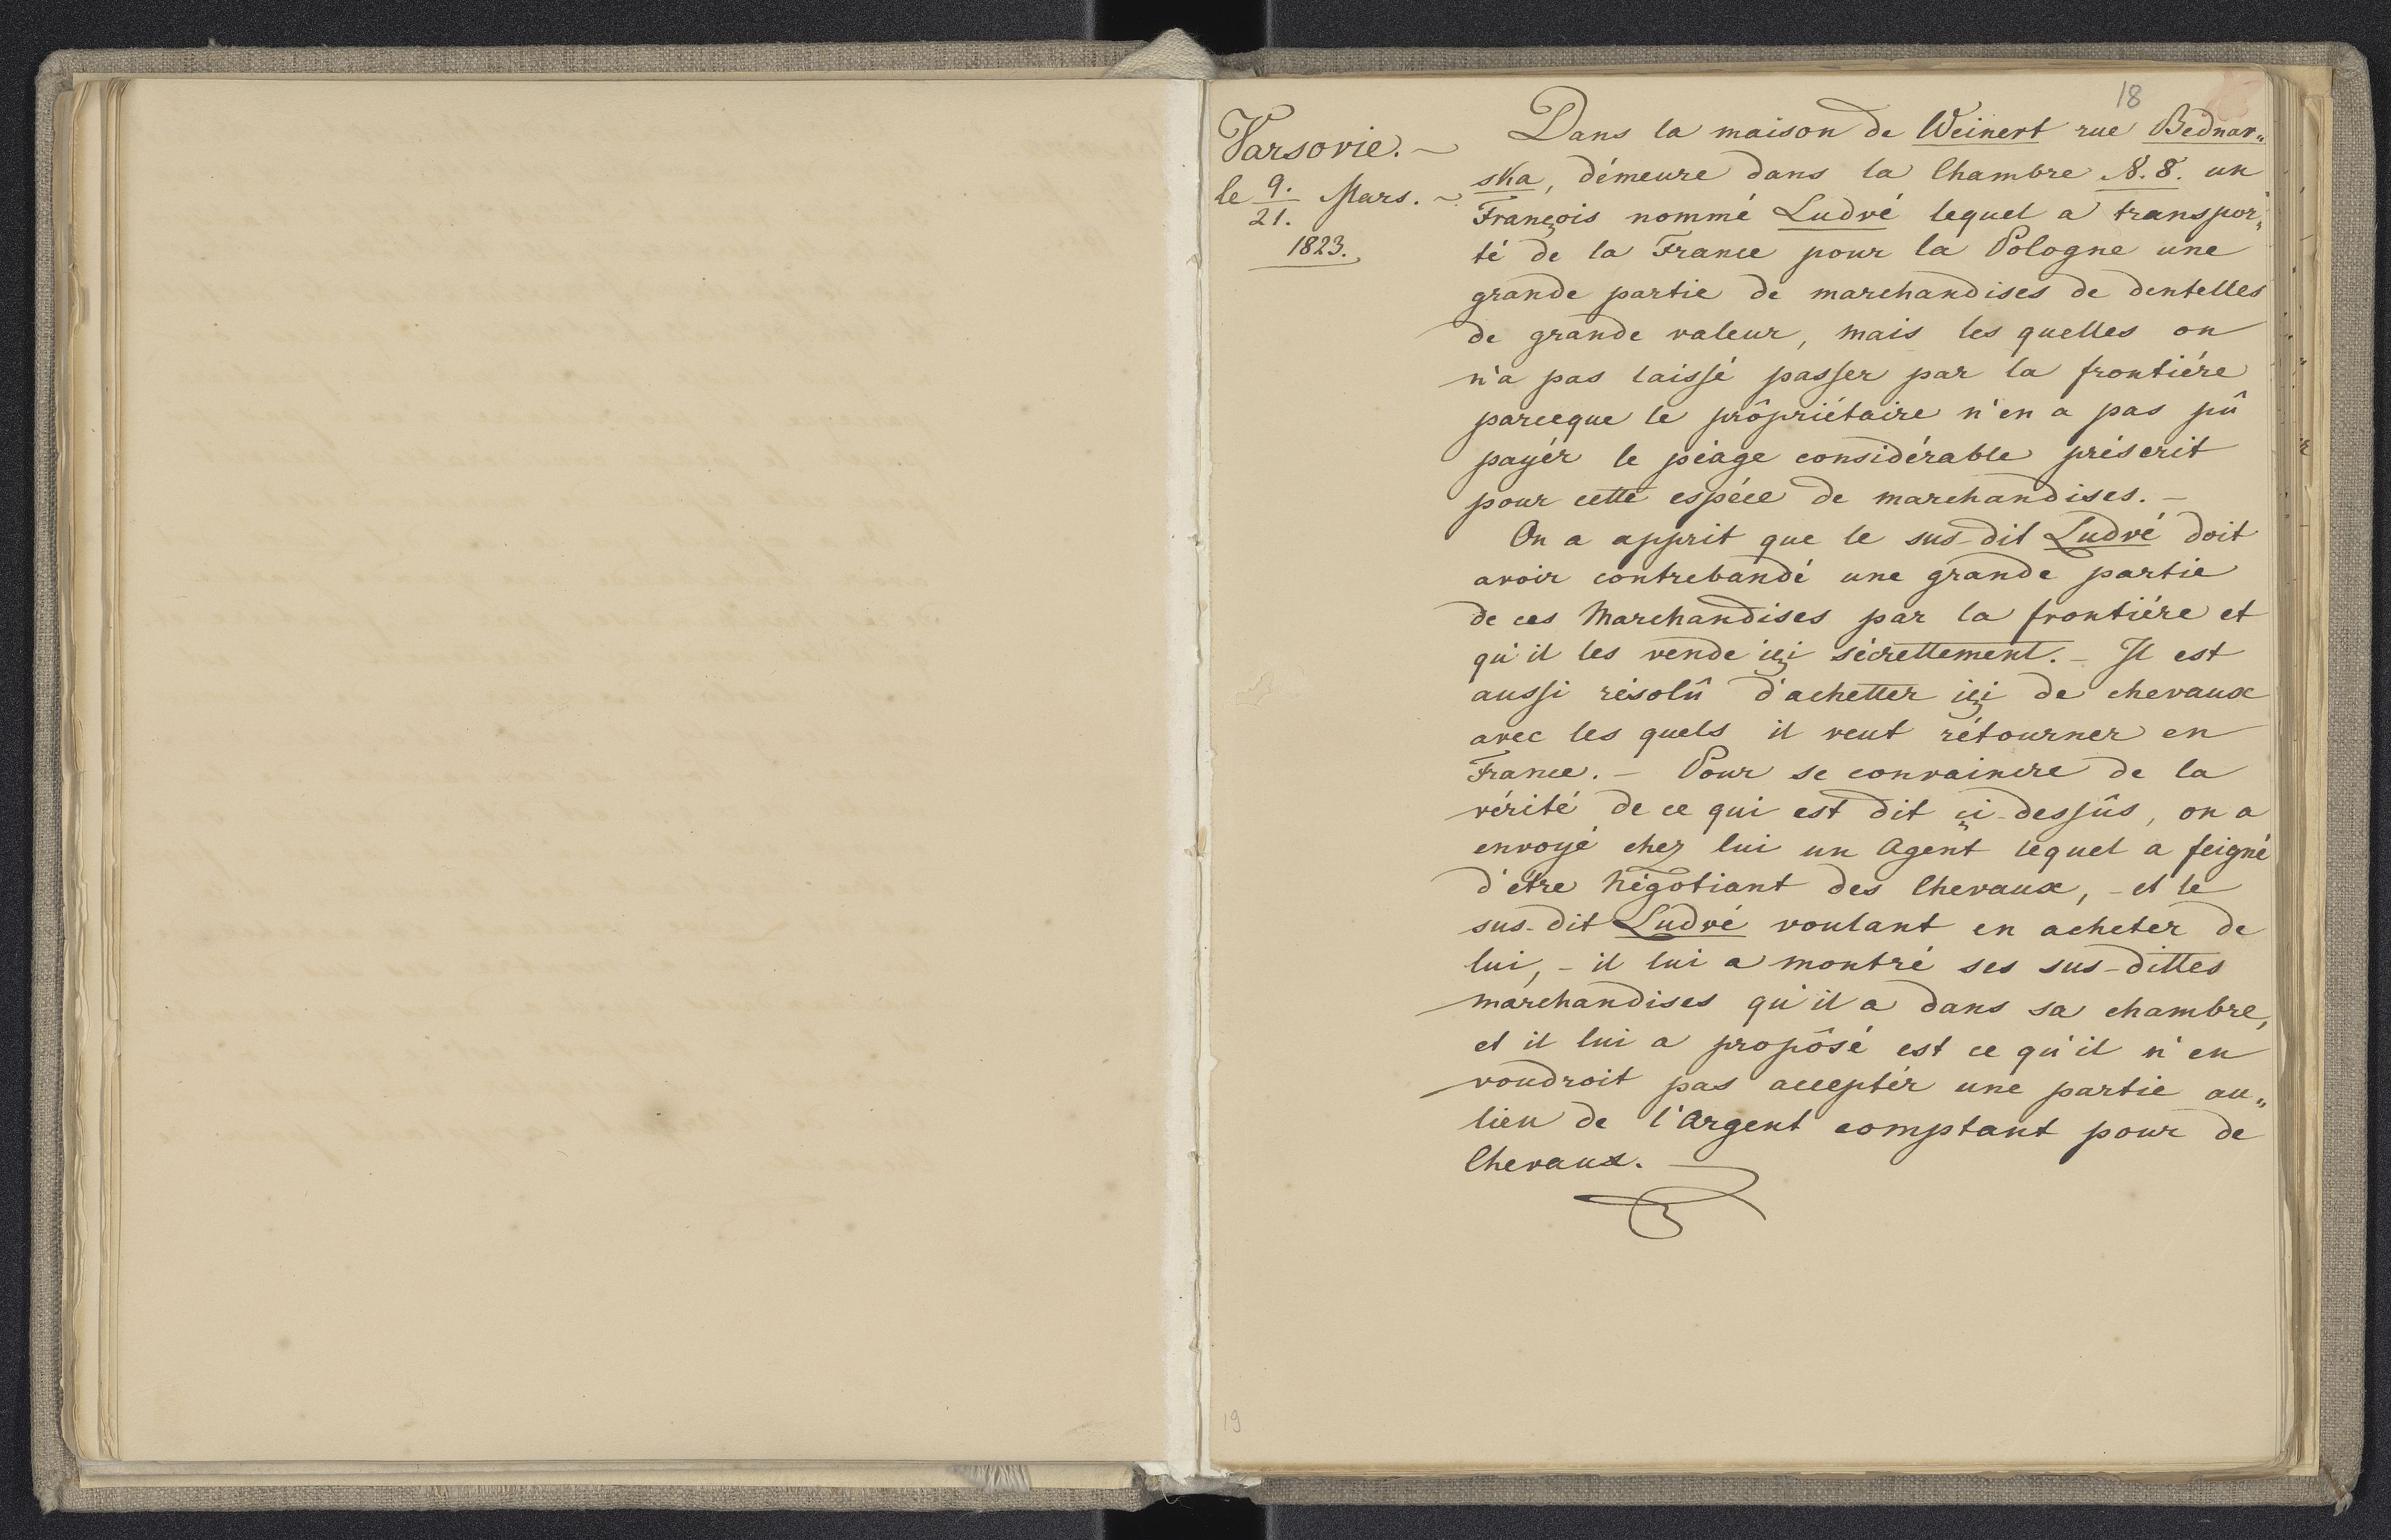 18
Varsovie. ~
le 9./21. Mars. ~
1823.
Dans la maison de Weinert rue Bednar„
ska, démeure dans la Chambre N. 8. un
François nommé Ludvé lequel a transpor„
té de la France pour la Pologne une
grande partie de marchandises de dentelles
de grande valeur, mais les quelles on
n'a pas laissé passer par la frontiére
parceque le prôpriétaire n'en a pas pû
payér le péage considérable préscrit
pour cette espéce de marchandises. –
On a apprit que le sus-dit Ludvé doit
avoir contrebandé une grande partie
de ces Marchandises par la frontiére et
qu'il les vende içi sécrettement. – Il est
aussi résolû d'achetter içi de chevaux
avec les quels il veut rétourner en
France. – Pour se convaincre de la
vérité de ce qui est dit çi-dessûs, on a
envoyé chez lui un Agent lequel a feigné
d'étre Négotiant des Chevaux, – et le
sus-dit Ludvé voulant en acheter de
lui, – il lui a montré ses sus-dittes
marchandises qu'il a dans sa chambre,
et il lui a propôsé est ce qu'il n'en
voudroit pas acceptér une partie au„
lieu de l'Argent comptant pour de
Chevaux. –
19